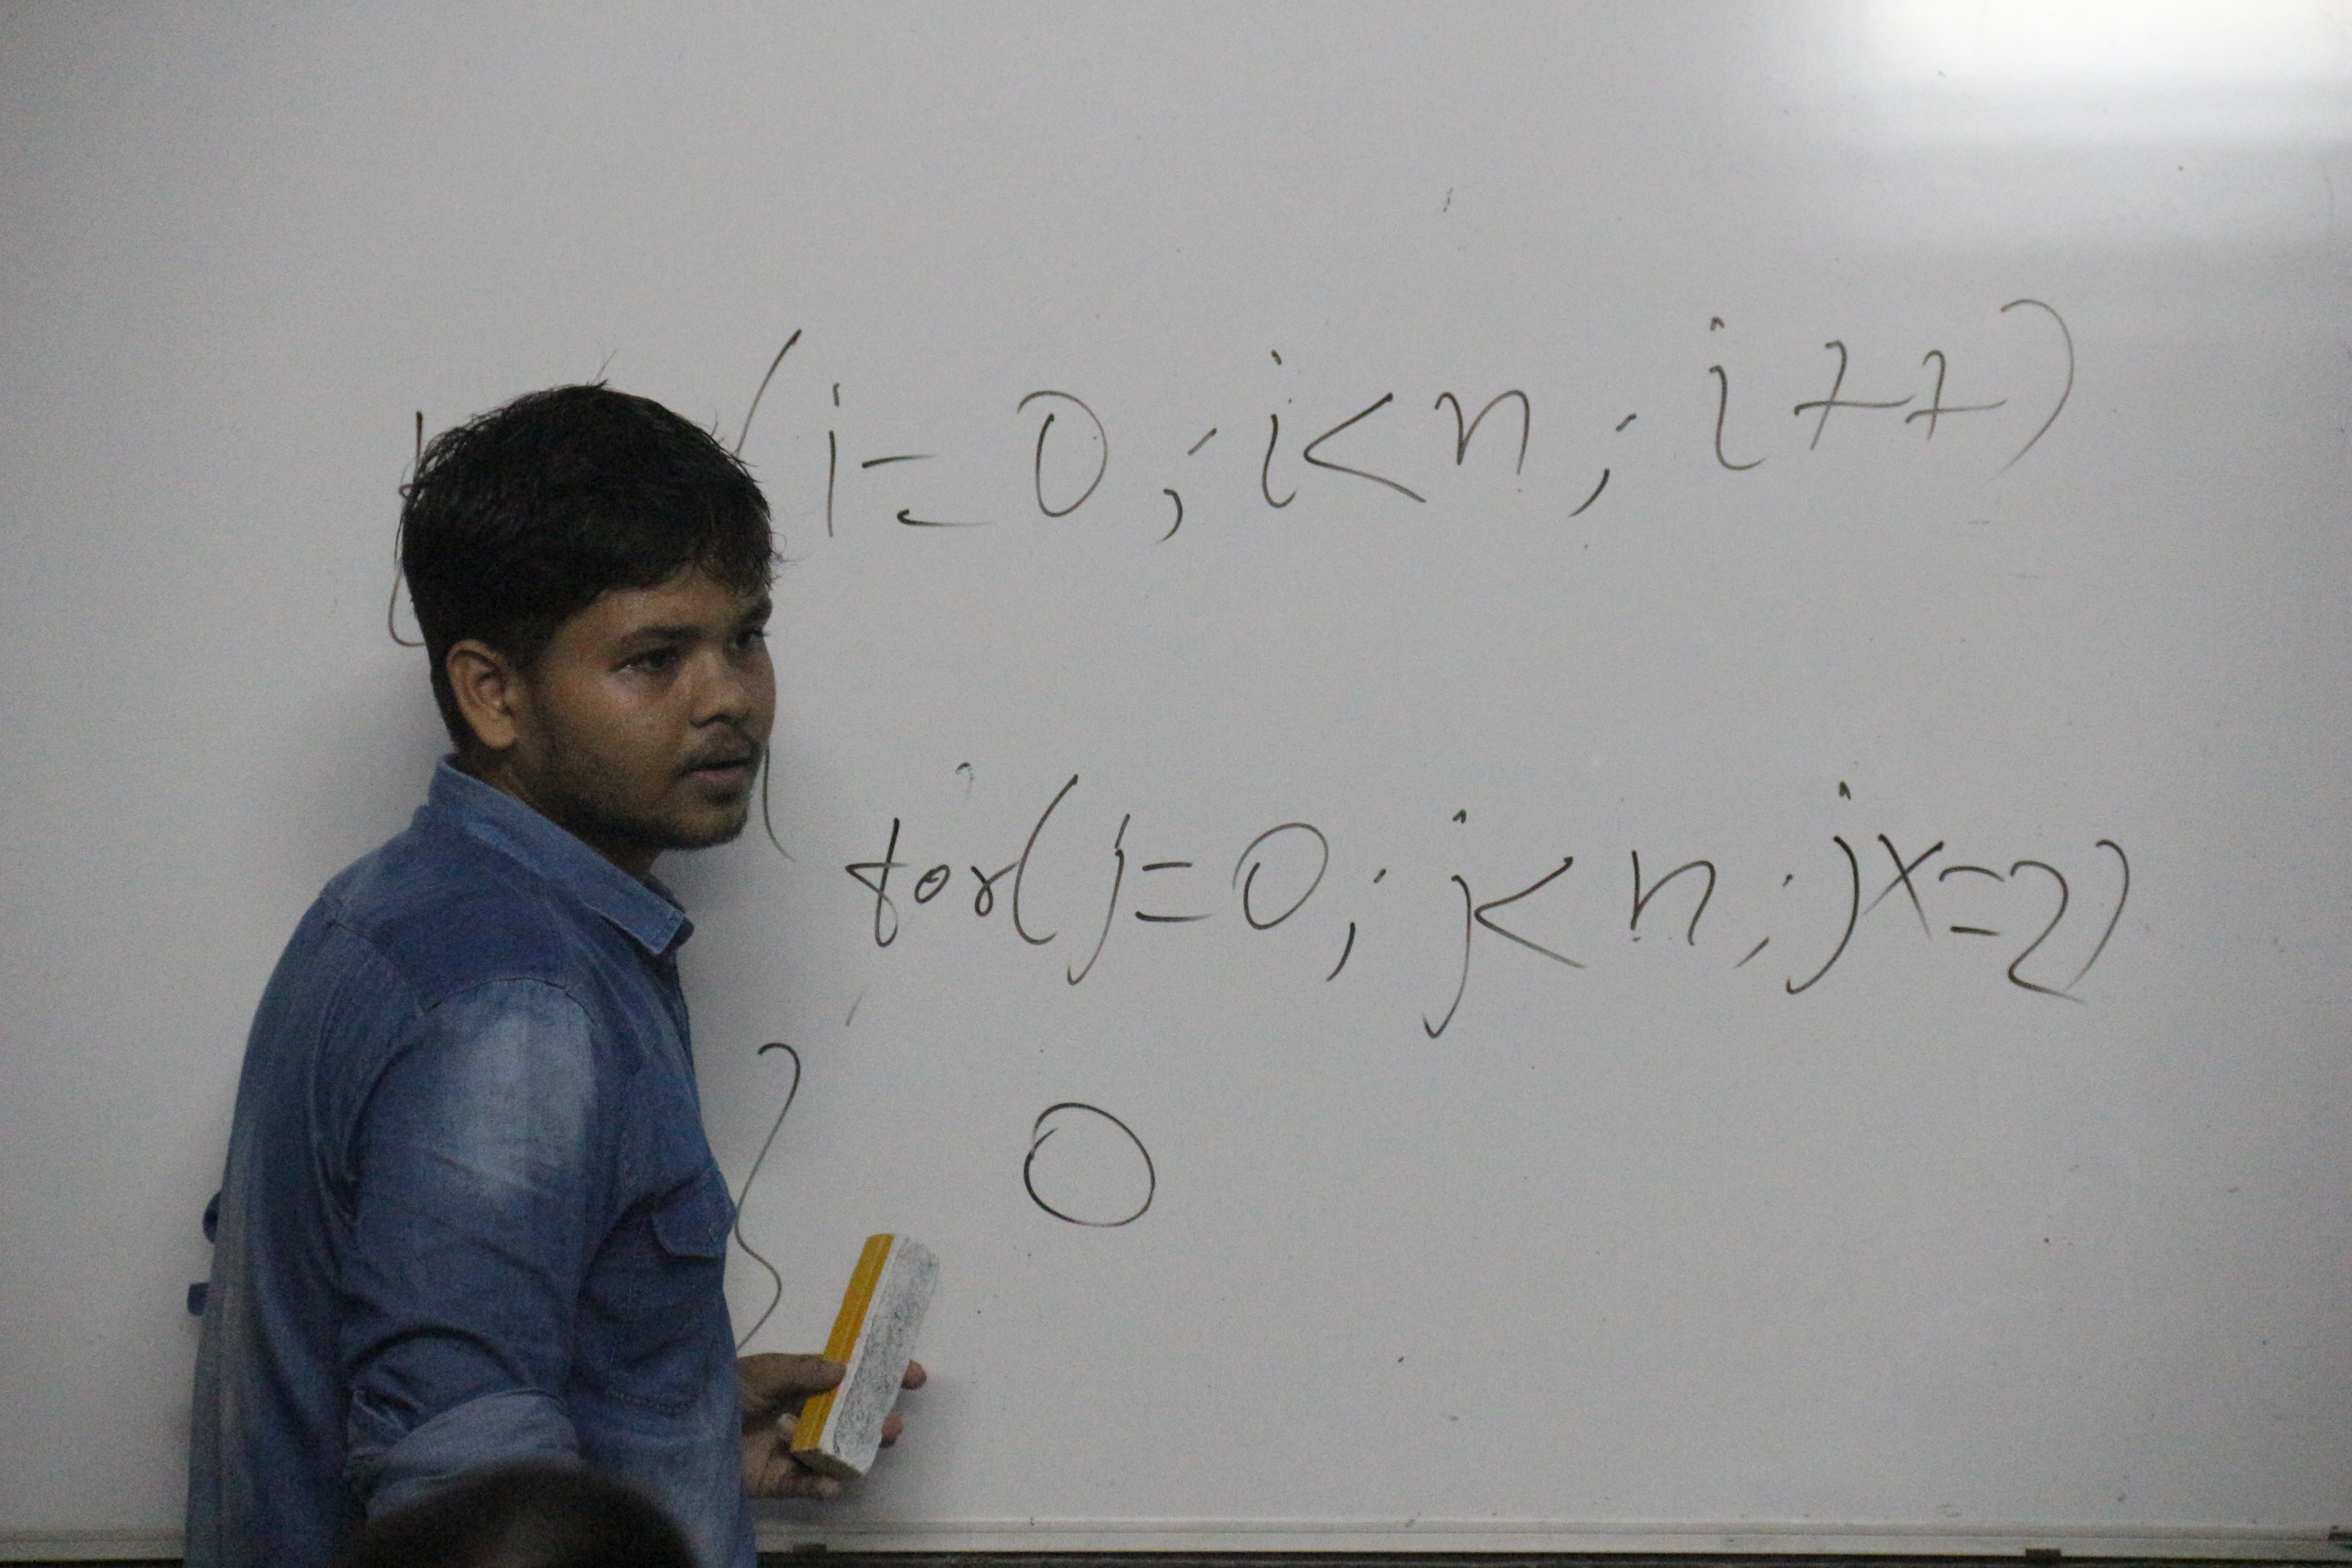 (i=0; i<n; i++)
{
for(j=0; j<n; jx=2)
}
0